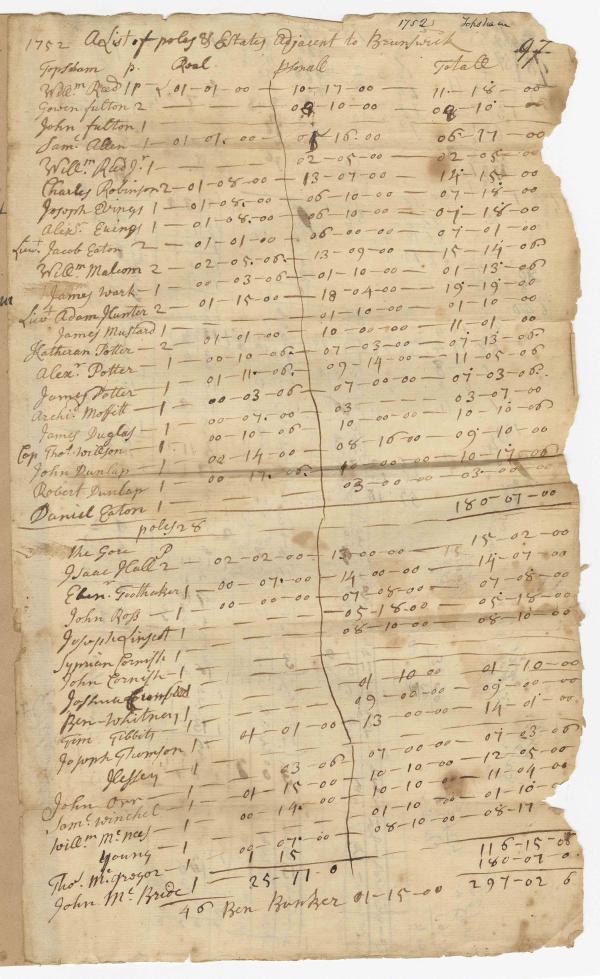 1752 Topsham
1752 A List of poles & Estates Adjacent to Brunswick 97
Topsham p. Real psonall Totall
Willm Read 1 P £ 01-01-00 10-17-00 11-18-00
Gowen fulton 2 10 00
John fulton 1
Saml Allen 1 01-01-00 16-00 06-17-00
Willm Read Jr 1 02-05-00 02-05-00
Charles Robinson 2 01-08-00 13-07-00 14-15-00
Joseph Ewings 1 01-08-00 06-10-00 07-18-00
Alexr Ewings 1 01-08-00 06-10-00 07-18-00
Lieut Jacob Eaton 2 01-01-00 06-00-00 07-01-00
Willm Malcom 2 02-05-06 13-09-00 15-14-06
James Wark 1 00-03-06 01-10-00 01-13-06
Lieut Adam Hunter 2 01-15-00 18-04-00 19-19-00
James Mustard 1 01-10-00 01-10-00
Katheran Potter 2 01-01-00 10-00-00 11-01-00
Alexr Potter 1 00-10-06 07-03-00 07-13-06
James Potter 1 01-11-06 09-14-00 11-05-06
Archi Moffitt 1 00-03-06 07-00-00 07-03-06
James Duglas 1 00-07-00 03 03-07-00
Cap Thos Willson 1 00-10-06 10-00-00 10-10-06
John Dunlap 1 00-14-00 08-16-00 09-10-00
Robert Dunlap 1 00-17-06 10-00-00 10-17-06
Daniel Eaton 1 03-00-00 03-00-00
poles 28 180-07-00
the Gore P
Isaac Hall 2 02-02-00 13-00-00 15-02-00
Ebenr Toothaker 1 00-07-00 14-00-00 14-07-00
John Ross 1 00-00-00 07-08-00 07-08-00
Joseph Linscot 1 05-18-00 05-18-00
Syprian Cornish 1 08-10-00 08-10-00
John Cornish 1
Joshua
Ben Whitney 1 01-10-00 01-10-00
Tim Tibbits 09-00-00 09-00-00
Joseph Thomson 1 01-01-00 13-00-00 14-01-00
Hessey 1
John Orr 1 03-06 07-00-00 07-03-06
Saml Winchel 1 01-15-00 10-10-00 12-05-00
Willm McNees 1 00 14-00 10-10-00 11-04-00
Young 1 01-10-00 01-10-00
Thos McGregor 1 00-07-00 08-10-00 08-17
John McBride 1 1 15 116-15-06
25-11-0 180-07-0
46 Ben Bunker 01-15-00 297-02 6